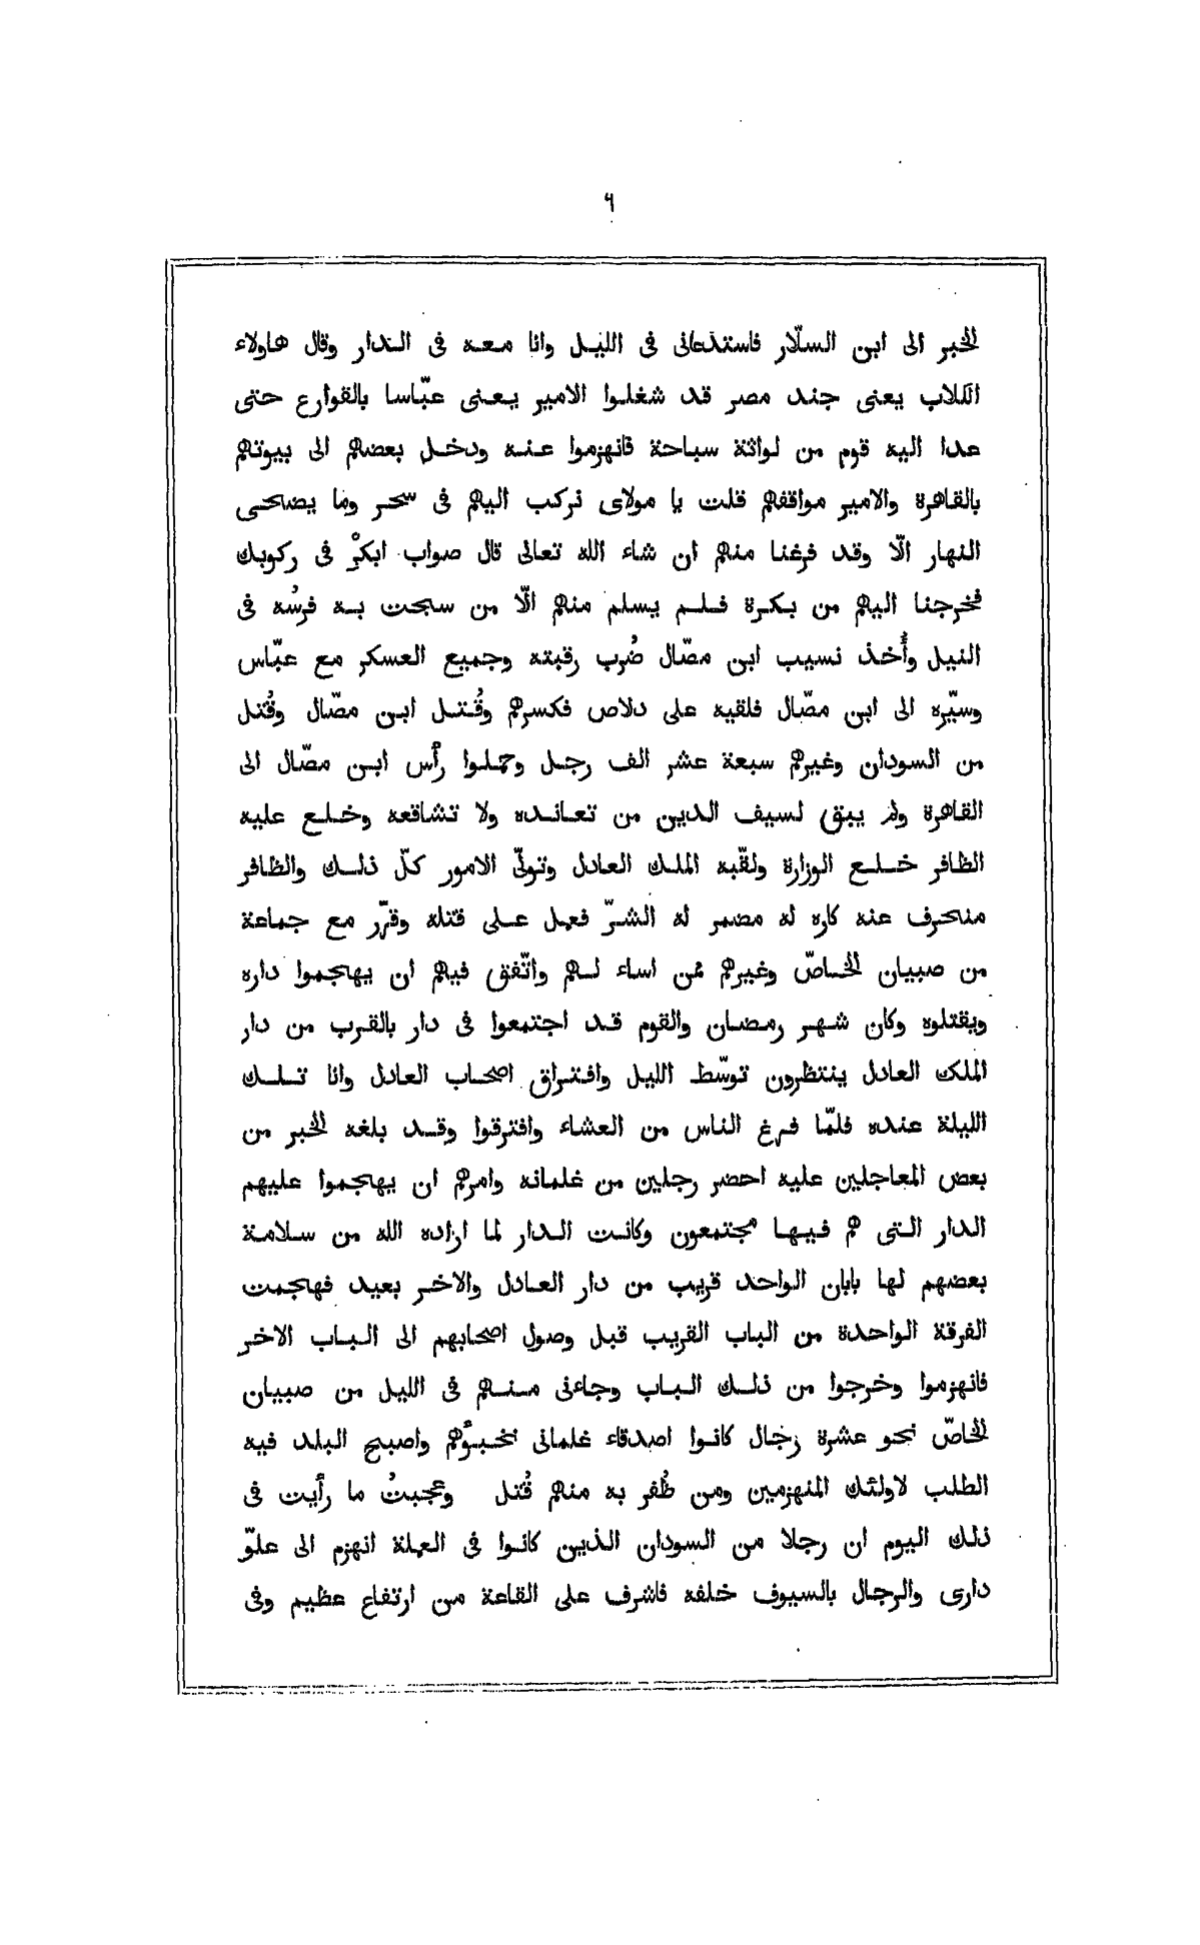 ٦
الخبر الى ابن السلّار فاستدعانى فى الليل وانا معه فى الدار وقال هاولاء
الكلاب يعنى جند مصر قد شغلوا الامير يعنى عبّاسا بالقوارع حتى
عدا اليه قوم من لواثة سباحة فانهزموا عنه ودخل بعضهم الى بيوتهم
بالقاهرة والامير مواقفهم قلت يا مولاى نركب اليهم فى سحر وما يضحى
النهار الّا وقد فرغنا منهم ان شاء الله تعالى قال صواب ابكرْ فى ركوبك
فخرجنا اليهم من بكرة فلم يسلم منهم الّا من سبحت به فرسُه فى
النيل وأُخذ نسيب ابن مصّال ضُرب رقبته وجميع العسكر مع عبّاس
وسيّره الى ابن مصّال فلقيه على دلاص فكسرهم وقُتل ابن مصّال وقُتل
من السودان وغيرهم سبعة عشر الف رجل وحملوا رأس ابن مصّال الى
القاهرة ولم يبق لسيف الدين من تعانده ولا تشاقعه وخلع عليه
الظافر خلع الوزارة ولقّبه الملك العادل وتولّى الامور كلّ ذلك والظافر
منحرف عنه كاره له مضمر له الشرّ فعمل على قتله وقرّر مع جماعة
من صبيان الخاصّ وغيرهم ممن اساء لهم واتّفق فيهم ان يهجموا داره
ويقتلوه وكان شهر رمضان والقوم قد اجتمعوا فى دار بالقرب من دار
الملك العادل ينتظرون توسّط الليل وافتراق اصحاب العادل وانا تلك
الليلة عنده فلمّا فرغ الناس من العشاء وافترقوا وقد بلغه الخبر من
بعض المعاجلين عليه احضر رجلين من غلمانه وامرهم ان يهجموا عليهم
الدار التى هم فيها مجتمعون وكانت الدار لما اراده الله من سلامة
بعضهم لها بابان الواحد قريب من دار العادل والاخر بعيد فهجمت
الفرقة الواحدة من الباب القريب قبل وصول اصحابهم الى الباب الاخر
فانهزموا وخرجوا من ذلك الباب وجاءنى منهم فى الليل من صبيان
الخاصّ نحو عشرة رجال كانوا اصدقاء غلمانى نخبؤهم واصبح البلد فيه
الطلب لاولئك المنهزمين ومن ظُفر به منهم قُتل وعجبتُ ما رأيت فى
ذلك اليوم ان رجلا من السودان الذين كانوا فى العملة انهزم الى علوّ
دارى والرجال بالسيوف خلفه فاشرف على القاعة من ارتفاع عظيم وفى